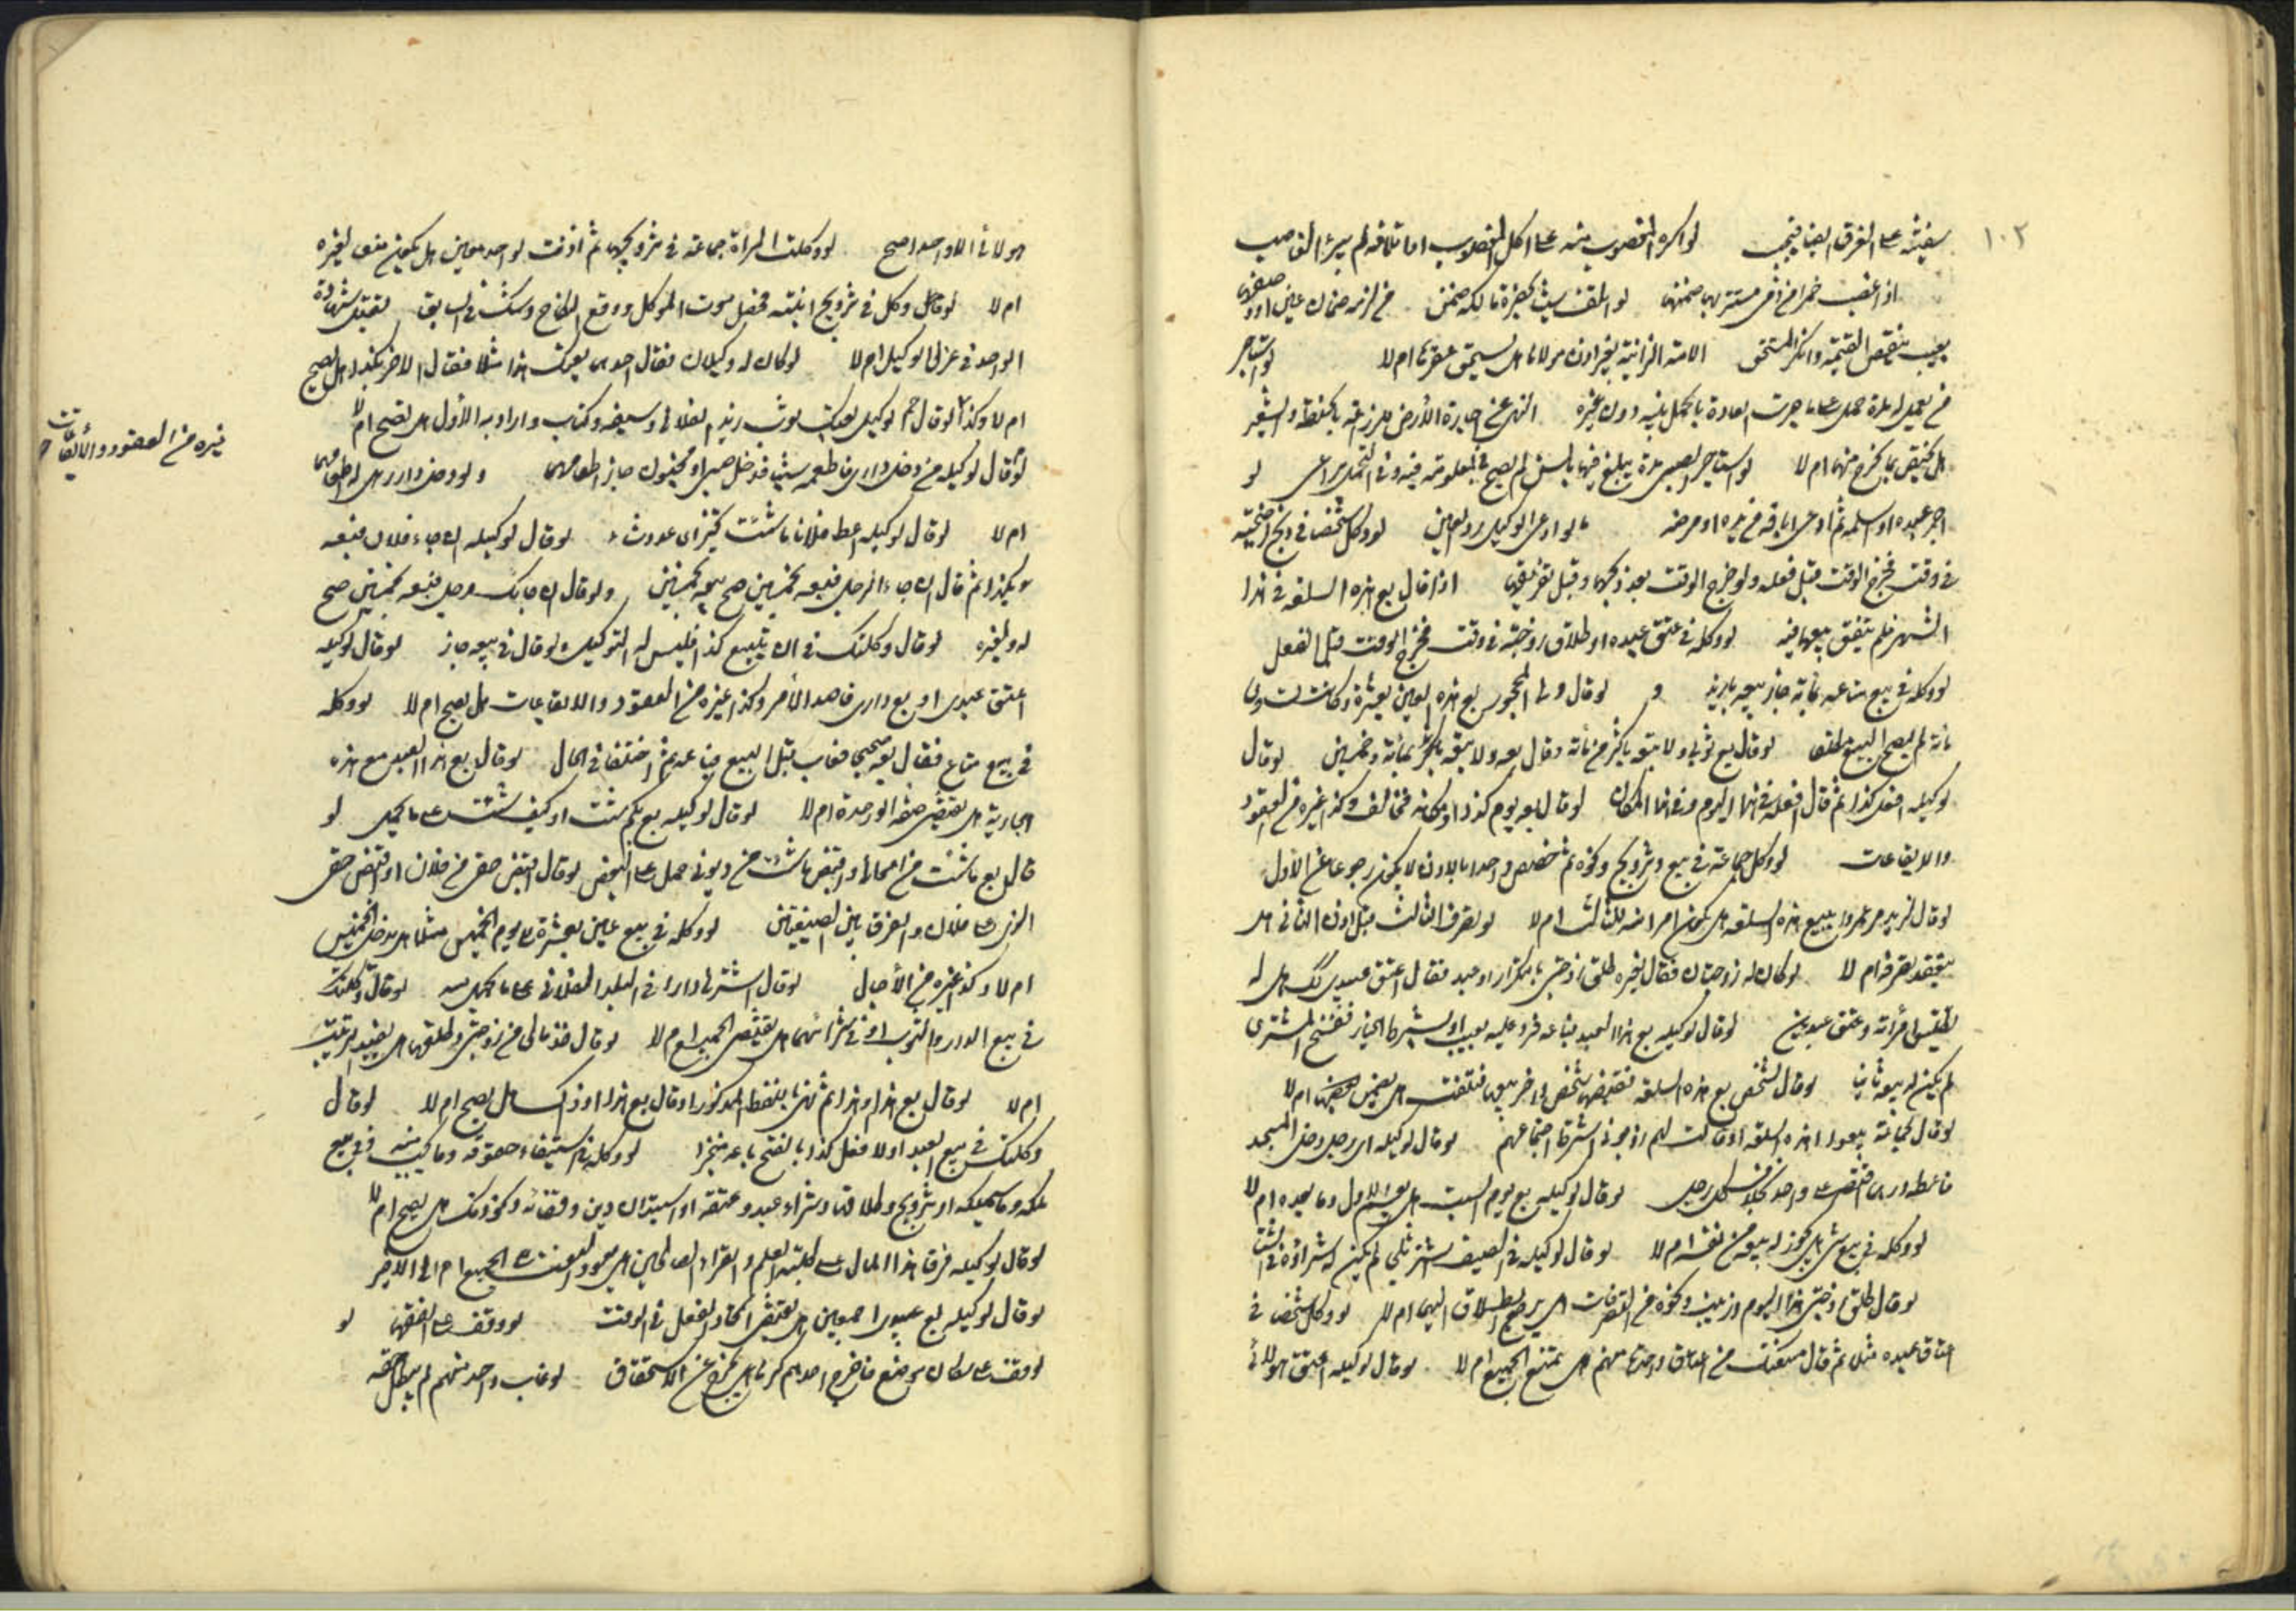 ١٠٢
سفينته على الغرق ايضا فيجب لو اكره المغصوب منه على اكل المغصوب اما تلافه لم يبرئ الغاصب
اذا غصب خمرا من ذمي مستتر بها ضمنها لو اتلف شيئا بحضرة مالكه ضمن
بعيب ينقص القيمة وانكر المستحق الامة الزانية بغير اذن مولاها هل يستحق عقرها ام لا لو استاجر
من يعمل له مدة حمل على ما جرت العادة بالعمل فيه دون غيره النهي عن اجارة الارض للزراعة بالحنطة والشعير
هل يختص بما يخرج منها ام لا لو استاجر لصبي مدة يبلغ فيها بالسن لم يصح في المعلومة فيه وفي لو
اجر عبده او سلمه ثم ادعى اباقه من يده او مرضه لو ادعى الوكيل رد العين لو وكل شخصا في ذبح اضحيته
في وقت فخرج الوقت قبل فعله ولو خرج الوقت بعد ذبحها وقبل تفريقها اذا قال بع هذه السلعة في هذا
الشهر فلم يتفق بيعها فيه لو وكله في عتق عبده او طلاق زوجته في وقت فخرج الوقت قبل الفعل
لو وكله في بيع متاعه بمائة جاز بيعه بازيد و لو قال ولي المحجور بع هذه العين بعشرة وكانت تساوي
مائة لم يصح البيع مطلقا لو قال بع ثوبي ولا تبعه باكثر من مائة وقال بعه ولا تبعه باكثر بمائة وخمسين لو قال
لوكيله افعل كذا ثم قال افعله في هذا اليوم وفي هذا المكان لو قال بعه يوم كذا او مكانه فخالف وكذا غيره من العقود
والايقاعات لو وكل جماعة في بيع وتزويج ونحوه ثم خصص واحدا بالاذن لا يكون رجوعا عن الاول
لو قال لزيد مر عمروا ببيع هذه السلعة هل يكون امرا منه للثالث ام لا لو تصرف الثالث قبل اذن الثاني هل
ينعقد تصرفه ام لا لو كان له زوجتان فقال لغيره طلق زوجتي بالتكرار او عبد فقال اعتق عبدي كذلك هل له
تطليق امرأته وعتق عبدين لو قال لوكيله بع هذا العبد فباعه فرد عليه بعيب او بشرط الخيار ففسخ المشتري
لم يكن له بيعه ثانيا لو قال لشخص بع هذه السلعة فقبضها شخص اخر بيعها فتلفت هل يضمن ام لا
لو قال لجماعة بيعوا هذه السلعة او قالت لهم زوجوني اشترط اجتماعهم لو قال لوكيله اي رجل دخل المسجد
فاعطه درهما اختص على واحد بخلاف كل رجل لو قال لوكيله بع يوم السبت هل يعم الاول وما بعده ام لا
لو وكله في بيع شيء هل يجوز له بيعه من نفسه ام لا لو قال لوكيله في الصيف اشتر ثلجا لم يكن له شراؤه في الشتاء
لو قال طلق زوجتي هذا اليوم وزينب ونحوه من التصرفات هل يرجع الطلاق اليهما ام لا لو وكل شخصا في
اعتاق عبيده مثلا ثم قال منعتك من اعتاق واحد منهم هل يمتنع الجميع ام لا لو قال لوكيله اعتق هؤلاء
هؤلاء الا واحدا صح لو وكلت المرأة جماعة في تزويجها ثم اذنت لواحد معين هل يكون منعا لغيره
ام لا لو قال وكل في تزويج ابنته فحصل موت الموكل ووقع النكاح وشك في السابق تقبل شهادة
الواحد في عزل الوكيل ام لا لو كان له وكيلان فقال احدهما بعتك هذا مثلا فقال الاخر بكذا هل يصح
ام لا وكذا لو قال لوكيل بعتك ثوب زيد الفلاني وسيفه وكتابه واراد به الأول هل يصح ام لا
لو قال لوكيله من دخل داري فاطعمه شيئا فدخل صبي او مجنون جاز اطعامهما ولو دخل داره هل له اطعامه
ام لا لو قال لوكيله اعط فلانا ما شئت لو قال لوكيله ان جاء فلان فبعه
بكذا ثم قال ان جاء الرجل فبعه بخمسين صح بيعه بخمسين ولو قال ان جاءك رجل فبعه بخمسين صح
له ولغيره لو قال وكلتك في ان تبيع كذا فليس له التوكيل ولو قال في بيعه جاز لو قال لوكيله
اعتق عبدي او بع داري قاصدا الأمر وكذا غيره من العقود والايقاعات هل يصح ام لا لو وكله
في بيع متاع فقال بعه فغاب قبل البيع فباعه ثم اختلفا في الحال لو قال بع هذا العبد مع هذه
الجارية هل يقتضي صفقة واحدة ام لا لو قال لوكيله بع بكم شئت او كيف شئت على ما يحمل لو
قال بع ما شئت من اموالي واقبض ما شئت من ديوني حمل على البعض لو قال اقبض حقي من فلان او اقبض حقي
الذي على فلان والفرق بين الصيغتين لو وكله في بيع عين بعشرة يوم الخميس مثلا هل يدخل الخميس
ام لا وكذا غيره من الآجال لو قال اشتر لي دارا في البلد الفلاني على ما يحمل لو قال وكلتك
في بيع الدار والثوب او في شرائهما هل يقتضي الجميع ام لا لو قال خذ مالي من زوجتي وطلقها هل يفيد الترتيب
ام لا لو قال بع هذا وهذا ثم نهي باللفظ المذكور او قال بع هذا او ذاك هل يصح ام لا لو قال
وكلتك في بيع العبد او لا فعل كذا بالفتح باعه منجزا لو وكله في استيفاء حقوقه وما يجب منه في بيع
ملكه وما يملكه او تزويج وطلاقها وشراء عبد وعتقه او استدان دين وقضائه ونحو ذلك هل يصح ام لا
لو قال لوكيله فرق هذا المال على طلبة العلم والقراء الصالحين هل يعود النعت الى الجميع ام الى الاخير
لو قال لوكيله بع عبيدي اجمعين هل يقتضي اتحاد الفعل في الوقت لو وقف على الفقهاء لو
لو وقف على سكان موضع فاخرج احدهم كرها هل يخرج عن الاستحقاق لو غاب واحد منهم لم يبطل حقه
غيره من العقود والأيقاعات